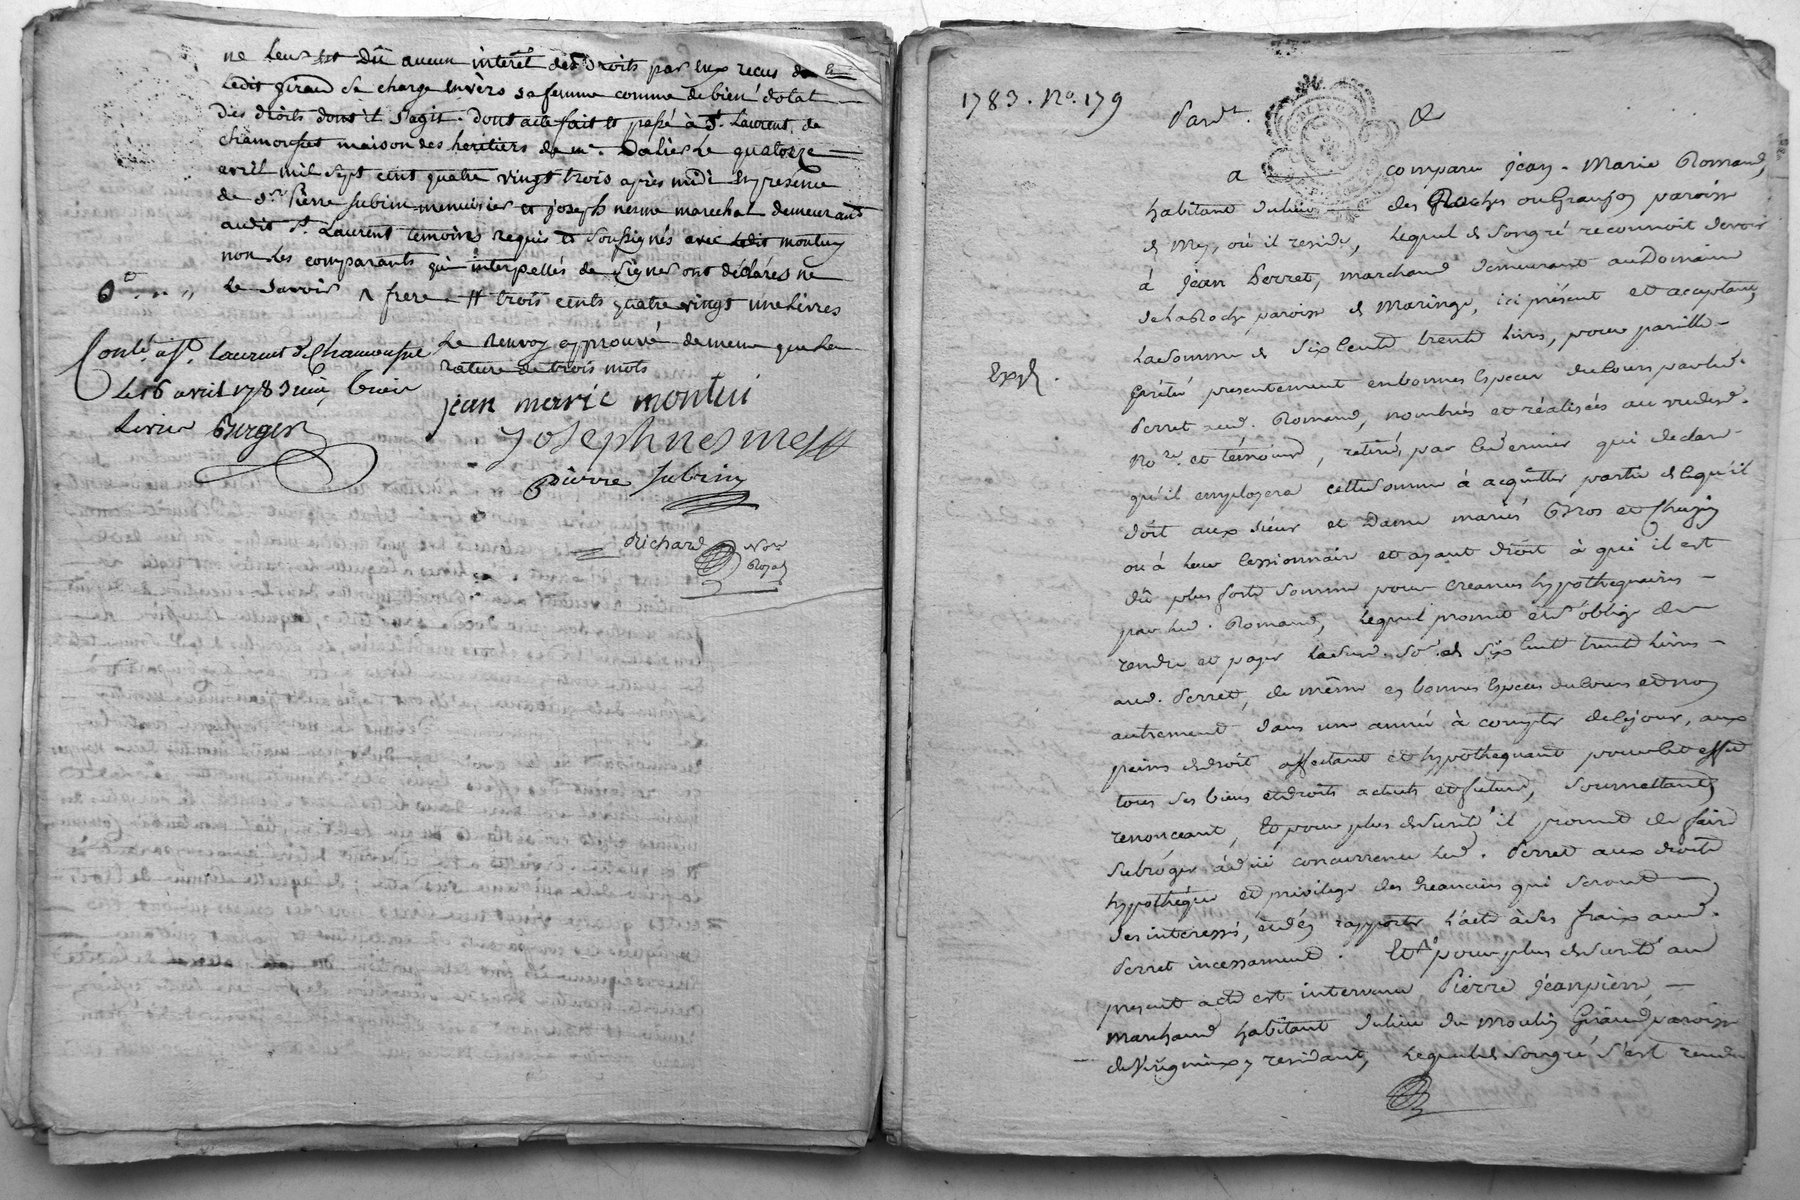 ne leur est dû aucun interêt des droits par eux recus de et
Ledit giraud se charge envèrs sa femme comme de bien dotal
Des droits dont il s'agit. dont acte fait et passé à St. Laurent de
chamousset maison des heritiers de me. Dalier Le quatorze
avril mil sept cent quatre vingt trois après midi en presence
de sr. Pierre Subrin menuisier et joseph nesme marechal demeurant
audit St. Laurent temoins requis et soussignés avec ledit montuy
non les comparants qui interpellés de signer ont déclarés ne
le savoir ^ frere # trois cents quatre vingt une Livres
Le Renvoy approuvé de meme que la
rature de trois mots
Conlé. a St. Laurent de Chamousset
Le 16 avril 1783 reçu treize
Livres Burger
jean marie montui
Joseph nesme
Pierre Subrin
Richard Nore
Royal
1783. No. 179
Pardt. &
a comparu jean-Marie Romand,
habitant du lieu des Roches ou Granjon paroisse
de Mey, où il reside, lequel de son gré reconnoit devoir
à Jean Perret, marchand demeurant au Domaine
de la Roche paroisse de Maringe, ici présent et acceptant,
la somme de six cent trente livres, pour pareille
Expé.
prêtée presentement en bonnes Especes du Cours par led.
Perret aud. Romand, nombrées et réalisées au vu desd.
No.re et témoins, retirée par ce dernier qui declare
qu'il employera cette somme à acquitter partie de ce qu'il
doit aux sieur et Dame mariés Gros et
ou à leur Cessionnaire et ayant droit à qui il est
dû plus forte somme pour creances hypothequaires
par led. Romand, lequel promet et s'oblige de
rendre et payer lad. so.e de six cent trente livres
aud. Perret, de même en bonnes Especes du Cours et non
autrement dans une année à compter de ce jour, aux
peines de droit affectant et hypothequant pour cet effet
tous ses biens et droits actuels et futurs, soumettant,
renonçant, Et pour plus de sureté il promet de faire
subroger à dûe concurrence led. Perret aux droits
hypothéque et privilege des Creanciers qui seront
desinteressés, et d'en rapporter l'acte à ses fraix aud.
Perret incessament. Et pour plus de sureté au
present acte est intervenu Pierre Jeanpierre
marchand habitant du lieu du moulin Giraud paroisse
de Virigneux y residant, lequel de son gré s'est rendu